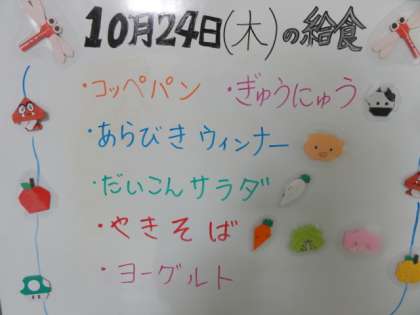 10月24日(木)の給食
・コッペパン ・ぎゅうにゅう
・あらびきウィンナー
・だいこんサラダ
・やきそば
・ヨーグルト